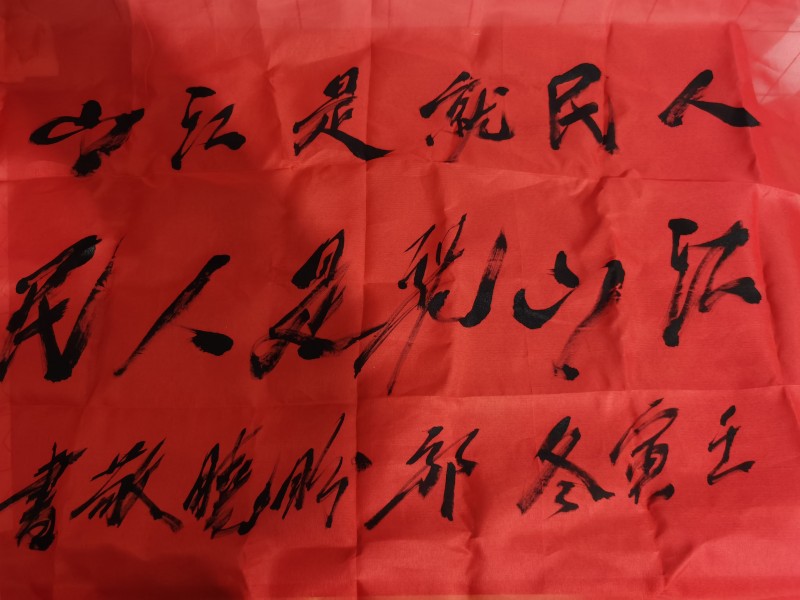 人民就是江山
江山就是人民
壬寅冬郭 晓敬書